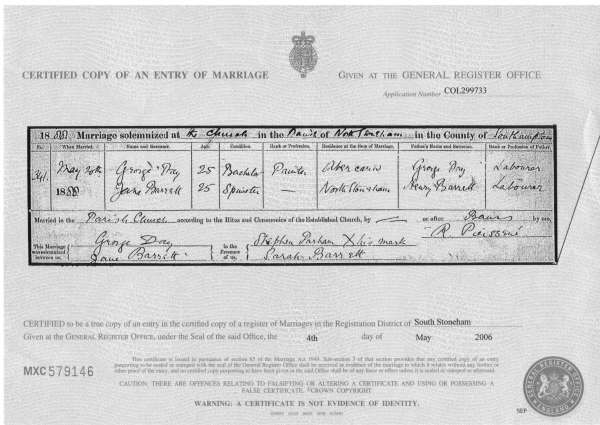 CERTIFIED COPY OF AN ENTRY OF MARRIAGE
GIVEN AT THE GENERAL REGISTER OFFICE
Application Number COL299733
Marriage solemnized at the Church in the Parish of North Stoneham in the County of Southampton
No. When Married. Name and Surname. Age. Condition. Rank or Profession. Residence at the time of Marriage. Father's Name and Surname. Rank or Profession of Father.
May 20th George Day 25 Bachelor George Day Labourer
18 Jane Barrett 25 Spinster — North Stoneham Henry Barrett Labourer
Married in the Parish Church according to the Rites and Ceremonies of the Established Church, by — or after Banns by me,
This Marriage was solemnized between us, George Day Jane Barrett in the Presence of us, Stephen Parham X his mark Sarah Barrett
CERTIFIED to be a true copy of an entry in the certified copy of a register of Marriages in the Registration District of South Stoneham
Given at the GENERAL REGISTER OFFICE, under the Seal of the said Office, the 4th day of May 2006
MXC 579146
This certificate is issued in pursuance of section 65 of the Marriage Act 1949. Sub-section 3 of that section provides that any certified copy of an entry
purporting to be sealed or stamped with the seal of the General Register Office shall be received as evidence of the marriage to which it relates without any further or
other proof of the entry, and no certified copy purporting to have been given in the said Office shall be of any force or effect unless it is sealed or stamped as aforesaid.
CAUTION: THERE ARE OFFENCES RELATING TO FALSIFYING OR ALTERING A CERTIFICATE AND USING OR POSSESSING A
FALSE CERTIFICATE. ©CROWN COPYRIGHT
WARNING: A CERTIFICATE IS NOT EVIDENCE OF IDENTITY.
GENERAL REGISTER OFFICE
ENGLAND